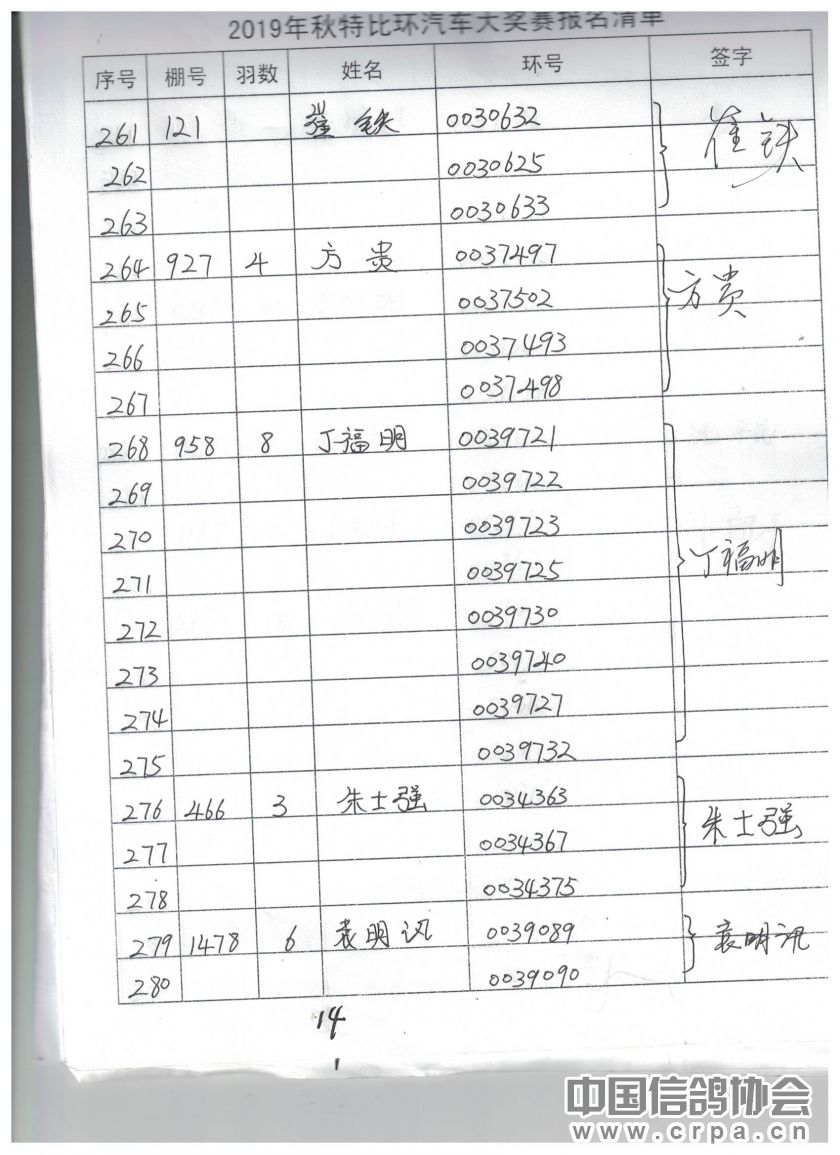 2019年秋特比环汽车大奖赛报名清单
序号 棚号 羽数 姓名 环号 签字
261 121 崔铁 0030632 崔铁
262 0030625
263 0030633
264 927 4 方贵 0037497 方贵
265 0037502
266 0037493
267 0037498
268 958 8 丁福明 0039721 丁福明
269 0039722
270 0039723
271 0039725
272 0039730
273 0039740
274 0039727
275 0039732
276 466 3 朱士强 0034363 朱士强
277 0034367
278 0034375
279 1478 6 袁明汛 0039089 袁明汛
280 0039090
14
中国信鸽协会
www.crpa.cn